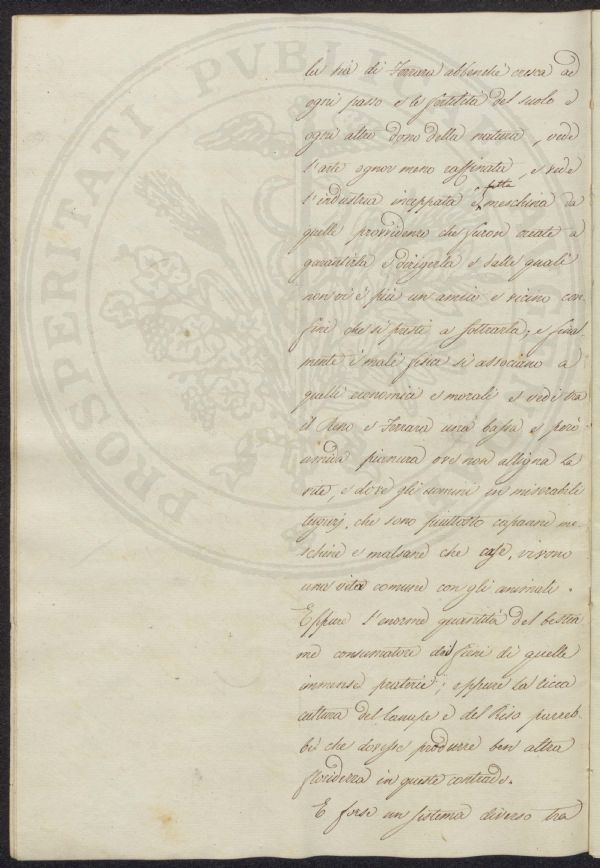 PROSPERITATI PVBLICAE
la via di Ferrara abbenchè cresca ad
ogni passo e la fertilità del suolo e
ogni altro dono della natura, vede
l'arte ognor meno raffinata, e vede
l'industria inceppata e fatta meschina da
quelle provvidenze che furon create a
garantirla e dirigerla e dalle quali
non vi è più un amico e vicino con-
fine che si presti a sottrarla; e final-
mente i mali fisici si associano a
quelli economici e morali e vedi tra
il Reno e Ferrara una bassa e però
umida pianura ove non alligna la
vite, e dove gli uomini in miserabili
tugurj, che sono piuttosto capanne me-
schine e malsane che case, vivono
una vita comune con gli animali.
Eppure l'enorme quantità del bestia-
me consumatore dei fieni di quelle
immense praterie; eppure la ricca
cultura del Canape e del Riso parreb-
be che dovesse produrre ben altra
floridezza in queste contrade.
E forse un sistema diverso tra